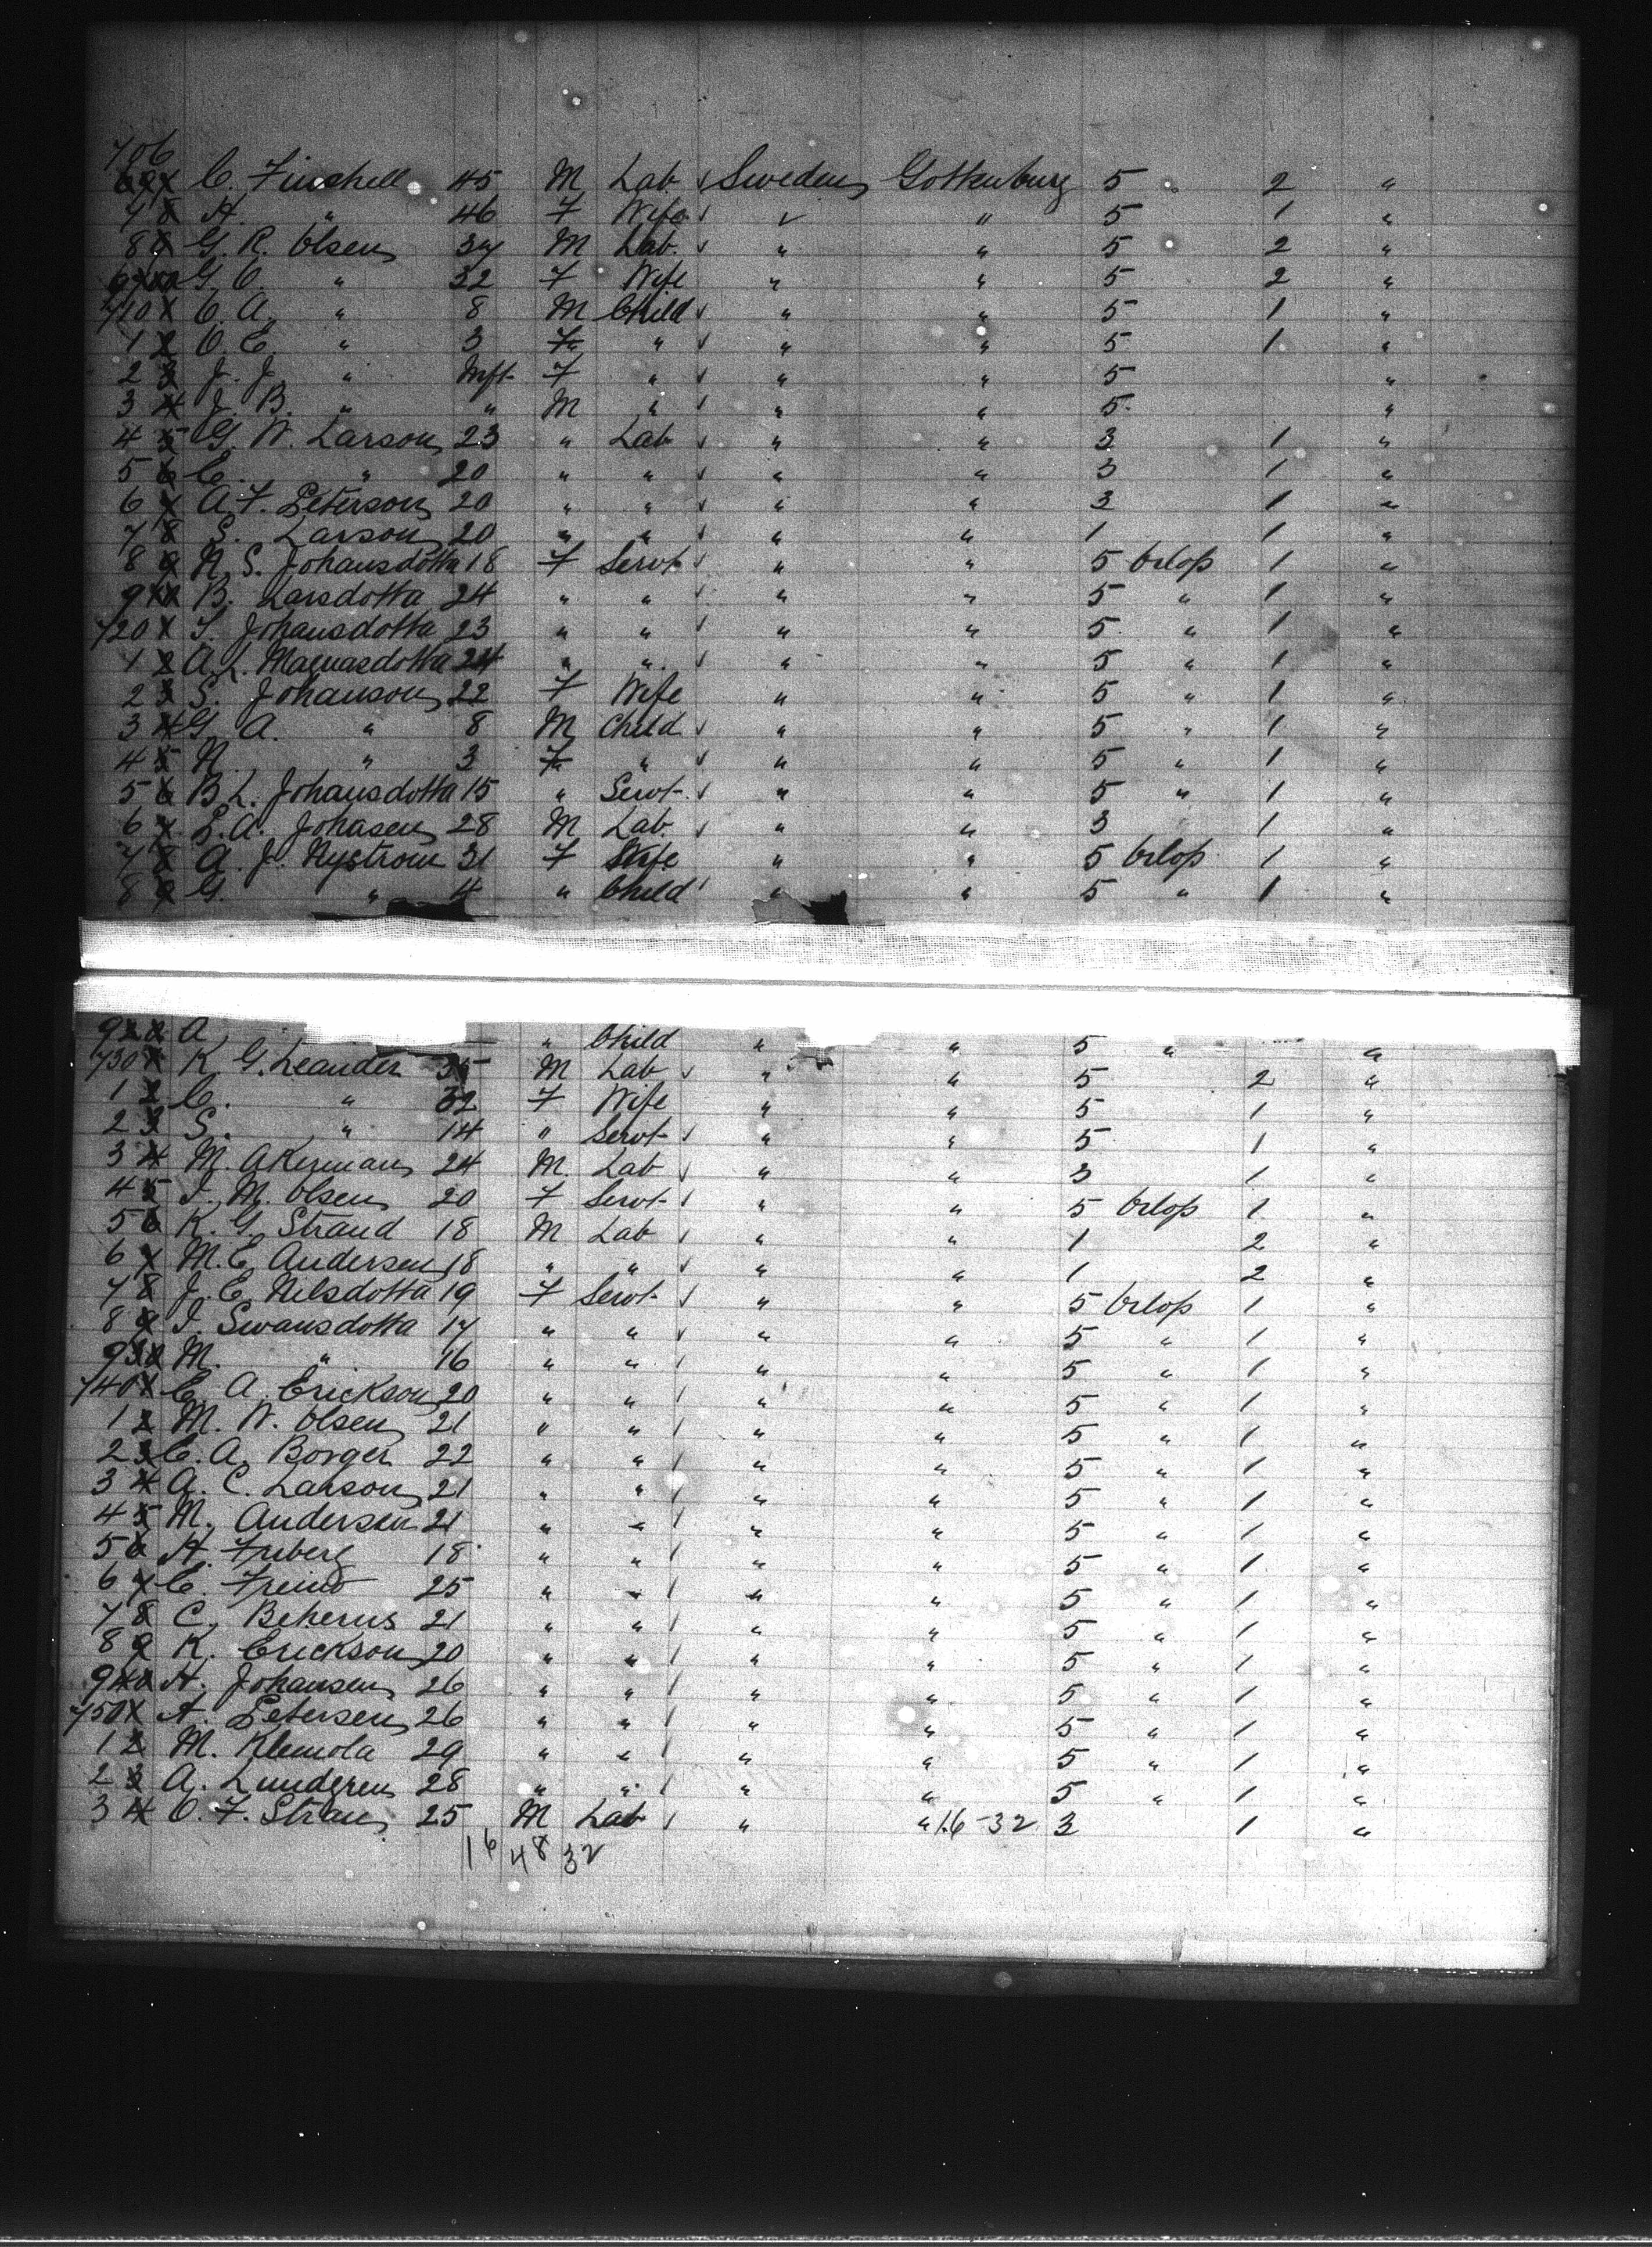 706 C. Finshell 45 M Lab ✓ Sweden Gothenburg 5 " 2 "
7 H. " 46 F Wife ✓ " " 5 1 "
8 G. R. Olsen 34 M Lab. ✓ " " 5 2 "
9 G. O. " 32 F Wife " " 5 2 "
710 O. A. " 8 M Child ✓ " " 5 1 "
1 O. E. " 3 F " ✓ " " 5 1 "
2 J. J. " Inft. F " ✓ " " 5 "
3 J. B. " " M " ✓ " " 5 "
4 G. W. Larson 23 " Lab ✓ " " 3 1 "
5 C. " 20 " " ✓ " " 3 1 "
6 A. F. Peterson 20 " " ✓ " " 3 1 "
7 S. Larson 20 " " ✓ " " 1 1 "
8 N. S. Johansdotta 18 F Servt ✓ " " 5 Orlop 1 "
9 B. Larsdotta 24 " " ✓ " " 5 " 1 "
720 S. Johansdotta 23 " " ✓ " " 5 " 1 "
1 A. L. 24 " " ✓ " " 5 " 1 "
2 S. Johanson 22 F Wife " " 5 " 1 "
3 G. A. " 8 M Child ✓ " " 5 " 1 "
4 N. " 3 F " ✓ " " 5 " 1 "
5 B. L. Johansdotta 15 " Servt. ✓ " " 5 " 1 "
6 L. A. Johasen 28 M Lab. ✓ " " 3 1 "
7 A. J. Nystrom 31 F Wife " " 5 Orlop 1 "
8 G. " 4 " Child " " 5 " 1 "
9 A. " Child " " 5 " "
730 K. G. Leander 35 M Lab ✓ " " 5 2 "
1 C. " 32 F Wife " " 5 1 "
2 S. " 14 " Servt ✓ " " 5 1 "
3 M. Akerman 24 M Lab ✓ " " 3 1 "
4 I. M. Olsen 20 F Servt ✓ " " 5 Orlop 1 "
5 K. G. Strand 18 M Lab ✓ " " 1 2 "
6 M. E. Andersen 18 " " ✓ " " 1 2 "
7 J. E. Nelsdotta 19 F Servt ✓ " " 5 Orlop 1 "
8 I. Swansdotta 17 " " ✓ " " 5 " 1 "
9 M. " 16 " " ✓ " " 5 " 1 "
740 E. A. Erickson 20 " " ✓ " " 5 " 1 "
1 M. W. Olsen 21 " " ✓ " " 5 " 1 "
2 C. A. Borger 22 " " ✓ " " 5 " 1 "
3 A. C. Larson 21 " " ✓ " " 5 " 1 "
4 M. Andersen 21 " " ✓ " " 5 " 1 "
5 H. Friberg 18 " " ✓ " " 5 " 1 "
6 C. 25 " " ✓ " " 5 " 1 "
7 C. Beherns 21 " " ✓ " " 5 " 1 "
8 K. Erickson 20 " " ✓ " " 5 " 1 "
9 H. Johansen 26 " " ✓ " " 5 " 1 "
750 A. Petersen 26 " " ✓ " " 5 " 1 "
1 M. Klemola 29 " " ✓ " " 5 " 1 "
2 A. Lundgren 28 " " ✓ " " 5 " 1 "
3 O. F. Stran 25 M Lab ✓ " " 16-32 3 1 "
16 48 32